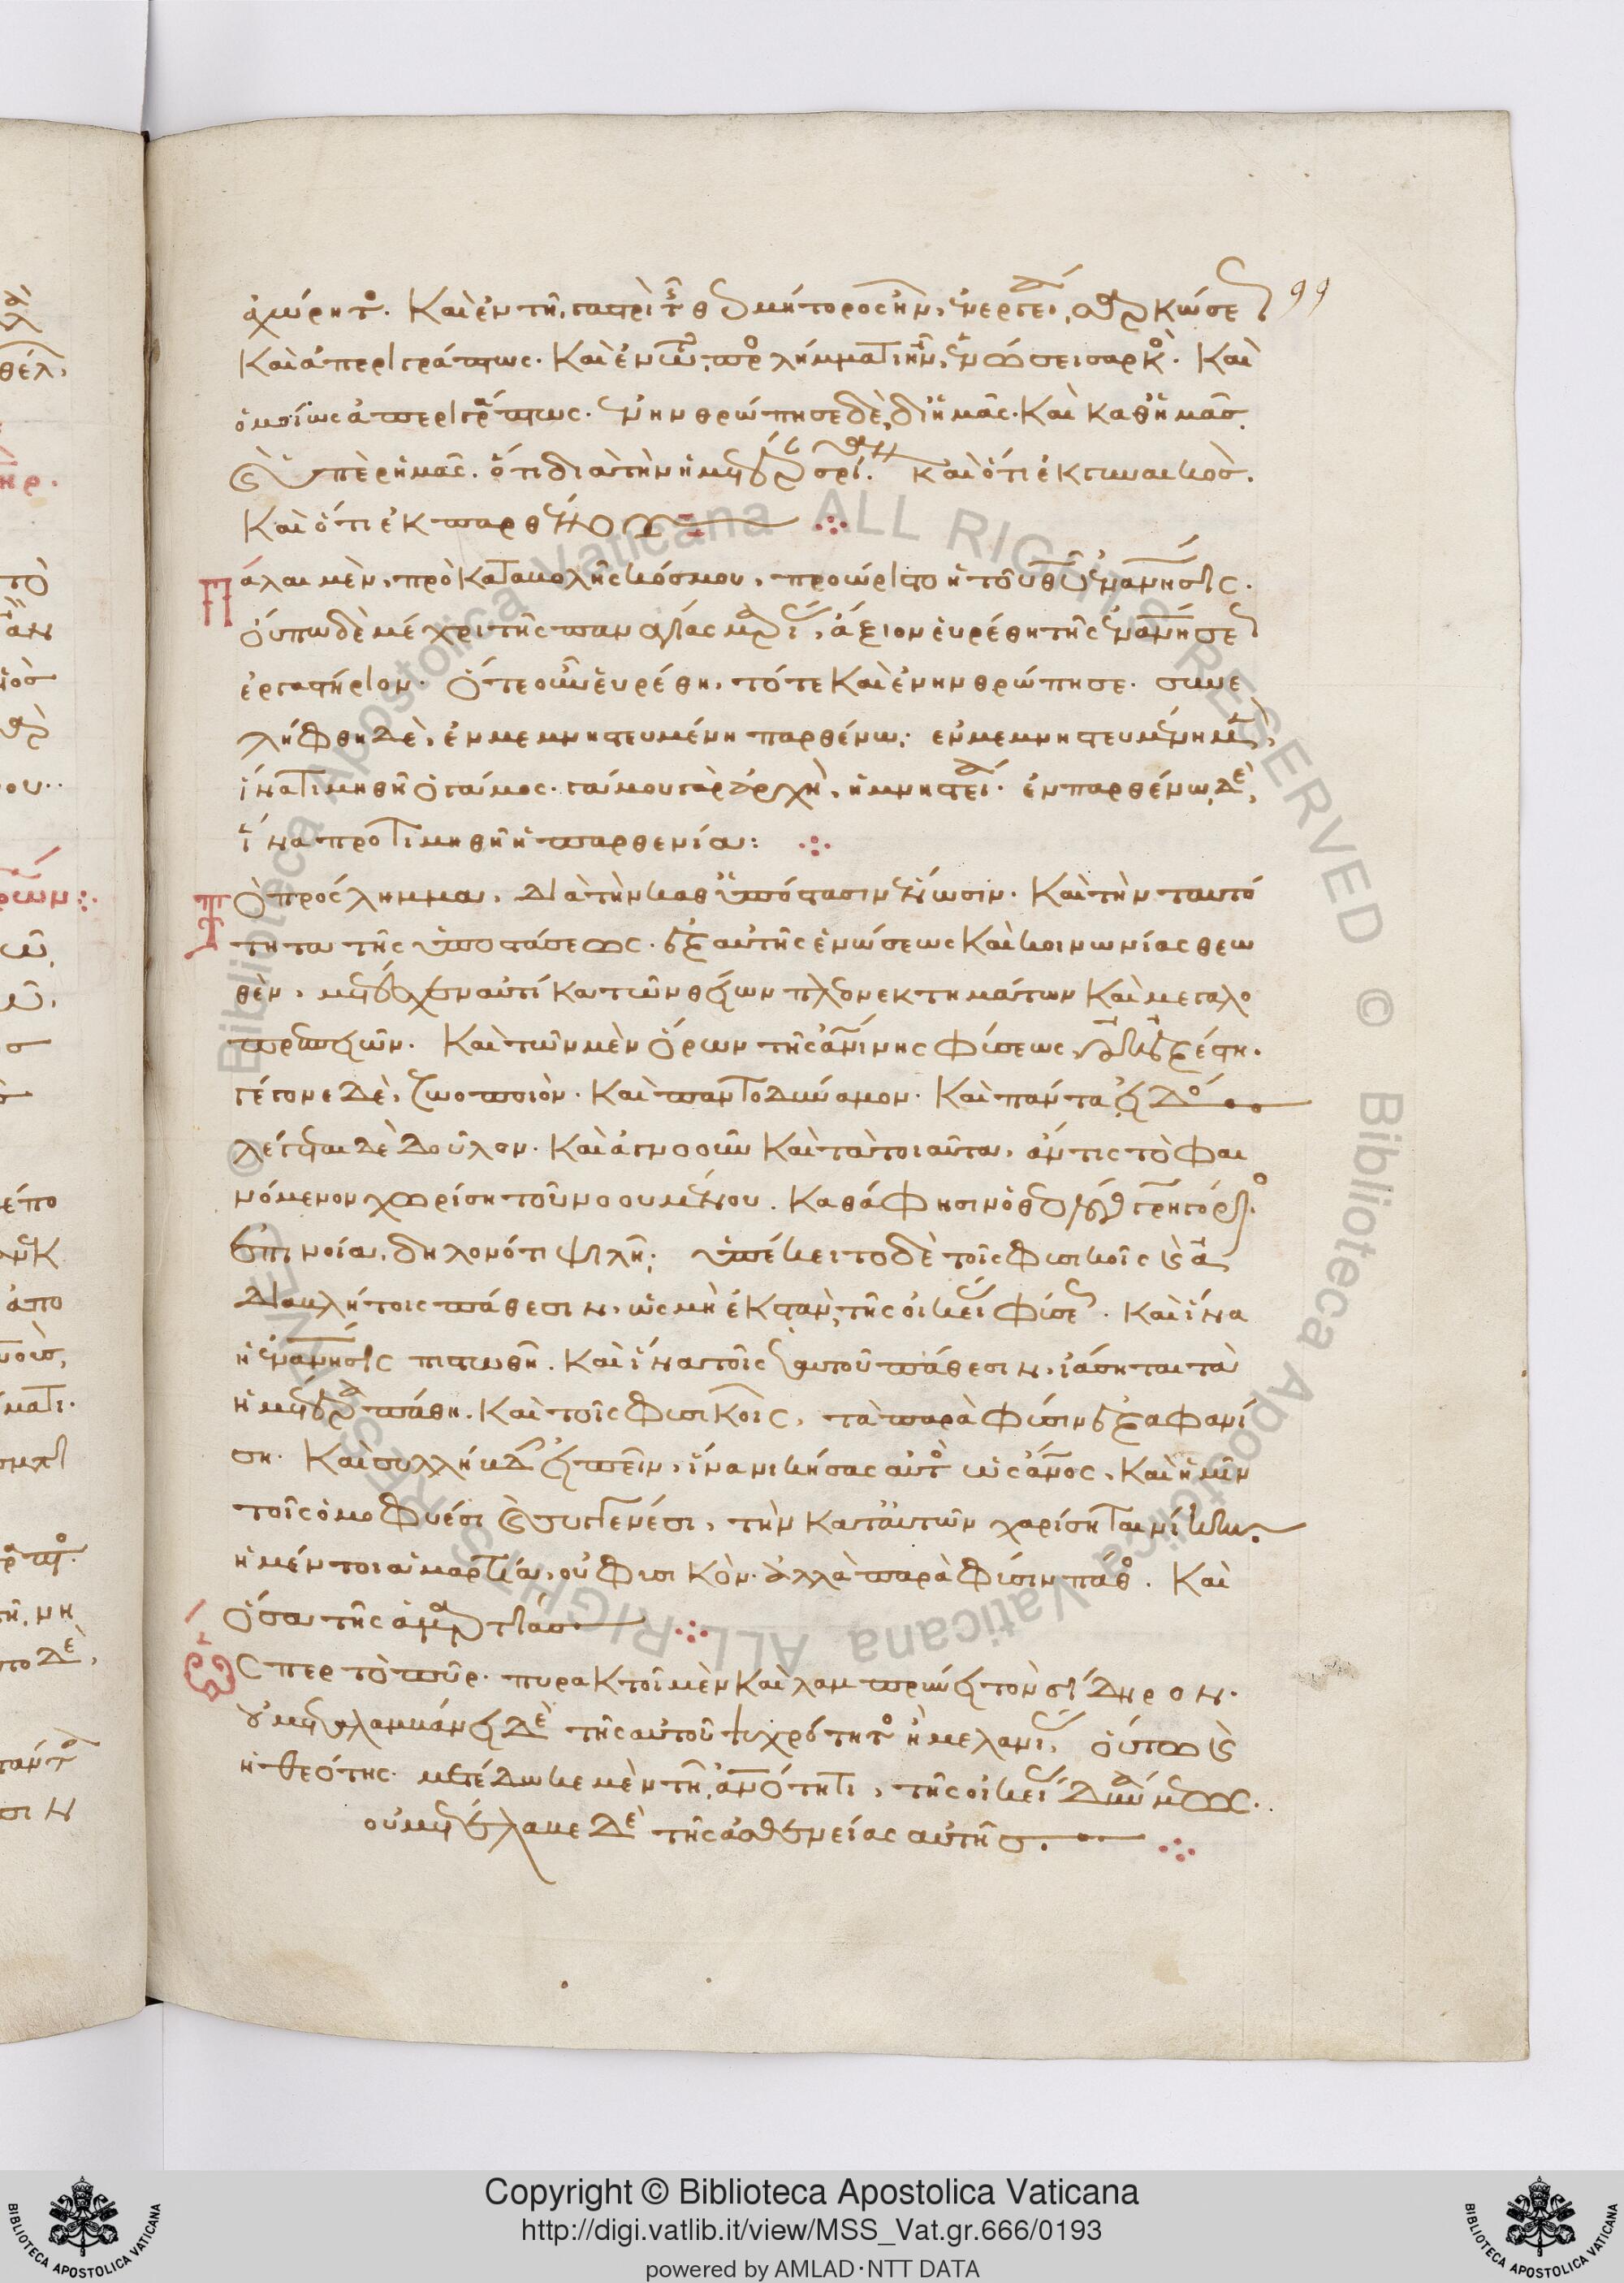 ἀχώρητος. Καὶ ἐν τῇ γαστρὶ τῆς θεομήτορος ἦν, ἐνεργείᾳ σαρκώσεως 99
Καὶ ἀπεριγράπτως. Καὶ ἐν τῷ προσλήμματι ἦν, ἑνώσει σαρκός. Καὶ
ὁμοίως ἀπεριγράπτως. ἐνηνθρώπησε δὲ, δι' ἡμᾶς. Καὶ καθ' ἡμᾶς.
καὶ ὑπὲρ ἡμᾶς. ὅτι διὰ τὴν ἡμετέραν καὶ ὅτι ἐκ γυναικός.
Καὶ ὅτι ἐκ παρθένου
Πάλαι μὲν, πρὸ καταβολῆς κόσμου, προώριστο ἡ τοῦ θεοῦ ἐνανθρώπησις.
οὔπω δὲ μέχρι τῆς παναγίας Μαρίας, ἄξιον εὑρέθη τῆς ἐνανθρωπήσεως
ἐργαστήριον. Ὅτε οὖν εὑρέθη, τότε καὶ ἐνηνθρώπησε. συνε
λήφθη δὲ, ἐν μεμνηστευμένη παρθένω· ἐν μεμνηστευμένη μὲν,
ἵνα τιμηθῆ ὁ γάμος. γάμου γὰρ ἀρχὴ, ἡ μνηστεία. ἐν παρθένω δὲ,
ἵνα προτιμηθῆ ἡ παρθενία:
Τὸ πρόσλημμα, διὰ τὴν καθ' ὑπόστασιν ἕνωσιν. Καὶ τὴν ταυτό
τητα τῆς ὑποστάσεως. ἐξ αὐτῆς ἑνώσεως καὶ κοινωνίας θεω
θὲν, μετέσχεν αὐτίκα τῶν θείων πλεονεκτημάτων καὶ μεγαλο
πρεπειῶν. Καὶ τῶν μὲν ὅρων τῆς ἀνθρωπίνης φύσεως, οὐκ ἐξέστη.
γέγονε δὲ, ζωοποιὸν. Καὶ παντοδύναμον. Καὶ πάντα εἰδός
λέγεται δὲ δοῦλον. Καὶ ἀγνοοῦν καὶ τὰ τοιαῦτα, ἄν τις τὸ φαι
νόμενον χωρίση τοῦ νοουμένου. Καθά φησιν ὁ Γρηγόριος.
ἐπινοία, δηλονότι ψιλῇ· ὑπέκειτο δὲ τοῖς φυσικοῖς καὶ ἀ
διαβλήτοις πάθεσιν, ὡς μὴ ἐκστὰν, τῆς οἰκείας φύσεως. Καὶ ἵνα
ἡ ἐνανθρώπησις πιστωθῆ. Καὶ ἵνα τοῖς ἑαυτοῦ πάθεσιν, ἰάσηται τὰ
ἡμέτερα πάθη. Καὶ τοῖς φυσικοῖς, τὰ παρὰ φύσιν ἐξαφανί
ση. Καὶ συλλήβδην εἰπεῖν, ἵνα νικήσας αὐτὸς ὡς ἄνθρωπος, Καὶ ἡμῖν
τοῖς ὁμοφυέσι καὶ συγγενέσι, τὴν κατ' αὐτῶν χαρίσηται νίκην.
ἡ μέντοι ἁμαρτία, οὐ φυσικὸν. ἀλλὰ παρὰ φύσιν πάθος. Καὶ
ὅσα τῆς ἁμαρτίας
Ὥσπερ τὸ πῦρ. πυρακτοῖ μὲν καὶ λαμπρύνει τὸν σίδηρον.
οὐ μεταλαμβάνει δὲ τῆς αὐτοῦ ψυχρότητος ἢ μελανίας, οὕτω καὶ
ἡ θεότης. μετέδωκε μὲν τῇ ἀνθρωπότητι, τῆς οἰκείας δυνάμεως.
οὐ μετέλαβε δὲ τῆς ἀσθενείας αὐτῆς.
Copyright © Biblioteca Apostolica Vaticana
http://digi.vatlib.it/view/MSS_Vat.gr.666/0193
powered by AMLAD·NTT DATA